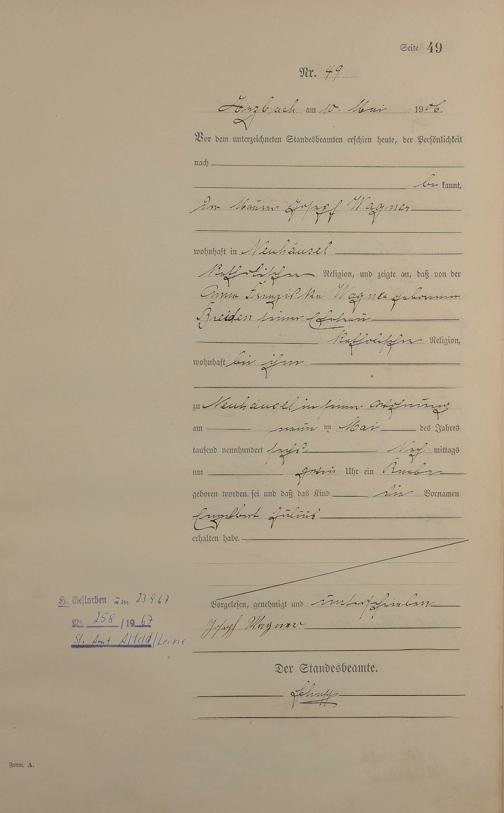 Seite 49
Nr. 49
am 10. Mai 1906
Vor dem unterzeichneten Standesbeamten erschien heute, der Persönlichkeit
nach
be kannt,
der Maurer Joseph Wagner
wohnhaft in Neuhäusel
katholischer Religion, und zeigte an, daß von der
Anna Franziska Wagner geborenen
Breiden seiner Ehefrau
katholischer Religion,
wohnhaft bei ihm
zu Neuhäusel in seiner Wohnung
am neun ten Mai des Jahres
tausend neunhundert sechs Nach mittags
um Uhr ein Knabe
geboren worden sei und daß das Kind die Vornamen
Engelbert Julius
erhalten habe.
Vorgelesen, genehmigt und unterschrieben
Joseph Wagner
Der Standesbeamte.
Gestorben am 23.9.67
Nr. 258 / 19 67
St. Amt Alfeld/Leine
Form. A.